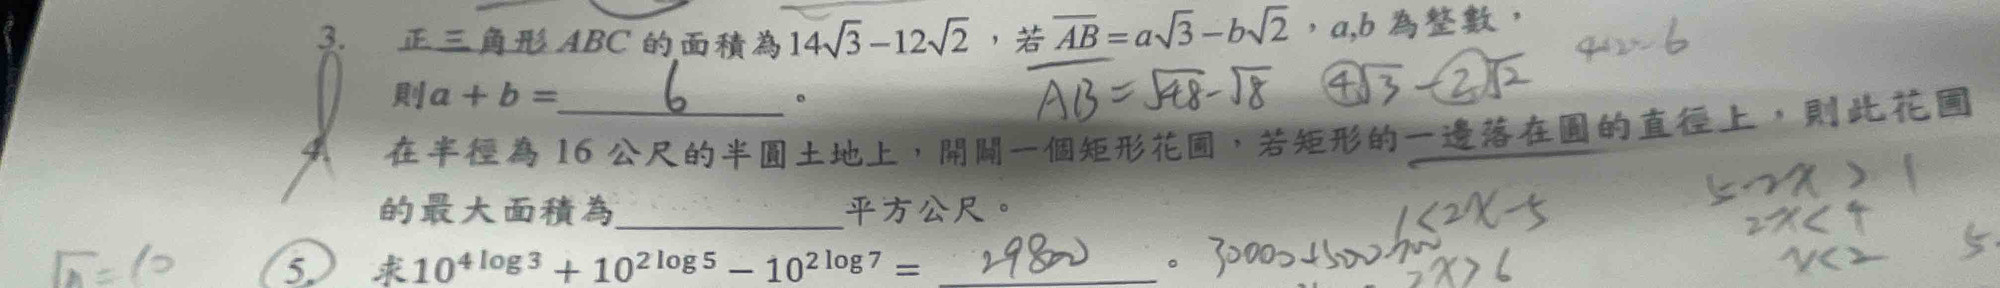 3. 正三角形 ABC 的面積為 14√3−12√2，若 AB = a√3−b√2，a,b 為整數，
4+2=6
則 a + b = 6 。
AB = √48−√8 ④√3 −②√2
4. 在半徑為 16 公尺的半圓土地上，開闢一個矩形花圃，若矩形的一邊落在圓的直徑上，則此花圃
的最大面積為 平方公尺。
1<2x−5
5−2x>1
2x<4
x<2
=10
5. 求 10^{4 log 3} + 10^{2 log 5} − 10^{2 log 7} = 29800 。
2x>6